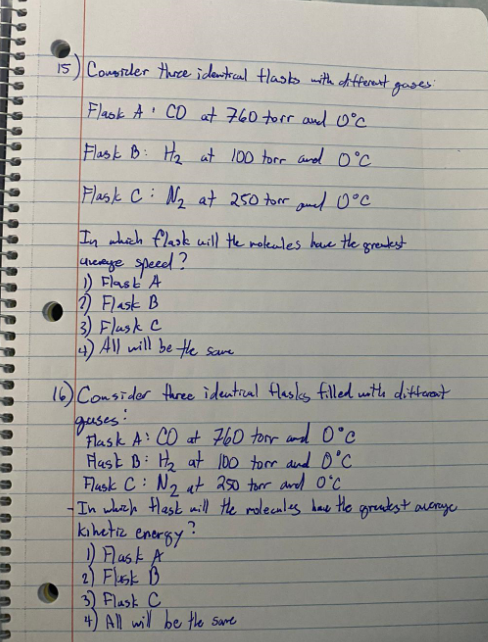 15) Consider three identical flasks with different gases:
Flask A: CO at 760 torr and 0°C
Flask B: H₂ at 100 torr and 0°C
Flask C: N₂ at 250 torr and 0°C
In which flask will the molecules have the greatest
average speed?
1) Flask A
2) Flask B
3) Flask C
4) All will be the same
16) Consider three identical flasks filled with different
gases:
Flask A: CO at 760 torr and 0°C
Flask B: H₂ at 100 torr and 0°C
Flask C: N₂ at 250 torr and 0°C
- In which flask will the molecules have the greatest average
kinetic energy?
1) Flask A
2) Flask B
3) Flask C
4) All will be the same